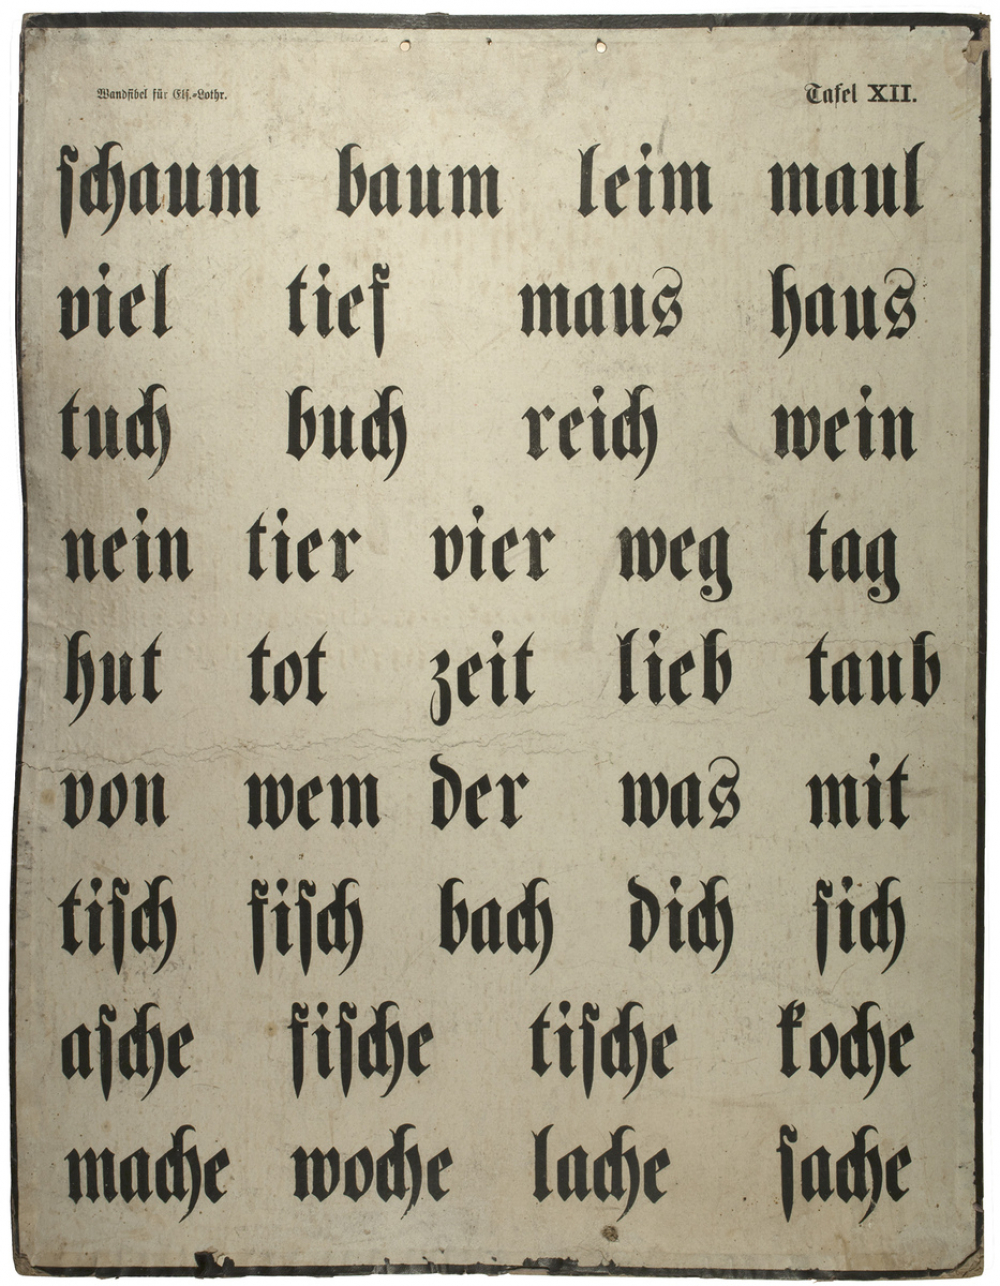 Wandfibel für Els.-Lothr. Tafel XII.
ſchaum baum leim maul
viel tief maus haus
tuch buch reich wein
nein tier vier weg tag
hut tot zeit lieb taub
von wem der was mit
tiſch fiſch bach dich ſich
aſche fiſche tiſche koche
mache woche lache ſache